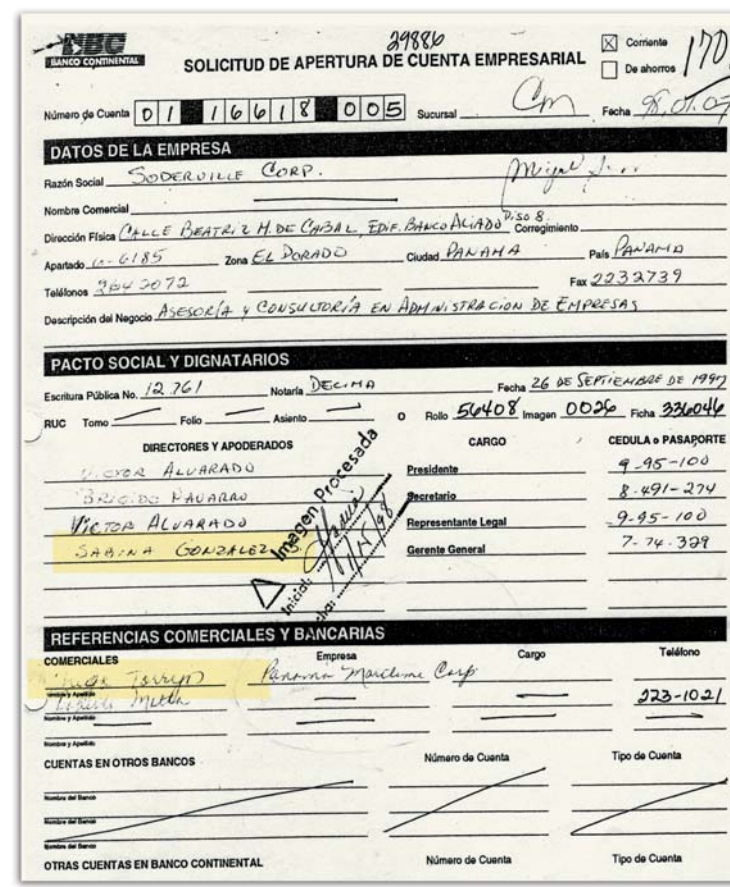 29886
NBC
BANCO CONTINENTAL
SOLICITUD DE APERTURA DE CUENTA EMPRESARIAL
Corriente
De ahorros
170
Número de Cuenta 01 16618 005 Sucursal Cm Fecha 98,01.07
DATOS DE LA EMPRESA
Razón Social SODERVILLE CORP.
Miguel
Nombre Comercial
Dirección Física CALLE BEATRIZ M. DE CABAL, EDIF. BANCO ALIADO PISO 8. Corregimiento
Apartado 6-6185 Zona EL DORADO Ciudad PANAMA País PANAMA
Teléfonos 264 2072 Fax 2232739
Descripción del Negocio ASESORÍA Y CONSULTORÍA EN ADMINISTRACION DE EMPRESAS
PACTO SOCIAL Y DIGNATARIOS
Escritura Pública No. 12.761 Notaría DECIMA Fecha 26 DE SEPTIEMBRE DE 1997
RUC Tomo Folio Asiento O Rollo 56408 Imagen 0026 Ficha 336046
DIRECTORES Y APODERADOS CARGO CEDULA o PASAPORTE
VICTOR ALVARADO Presidente 9-95-100
BRIGIDO NAVARRO Secretario 8-491-274
VICTOR ALVARADO Representante Legal 9-95-100
SABINA GONZALEZ S. Gerente General 7-74-329
Imagen Procesada
Inicial:
REFERENCIAS COMERCIALES Y BANCARIAS
COMERCIALES Empresa Cargo Teléfono
Hugo Torrijos Panama Maritime Corp
Nombre y Apellido
223-1021
Nombre y Apellido
Nombre y Apellido
CUENTAS EN OTROS BANCOS Número de Cuenta Tipo de Cuenta
Nombre del Banco
Nombre del Banco
Nombre del Banco
OTRAS CUENTAS EN BANCO CONTINENTAL Número de Cuenta Tipo de Cuenta